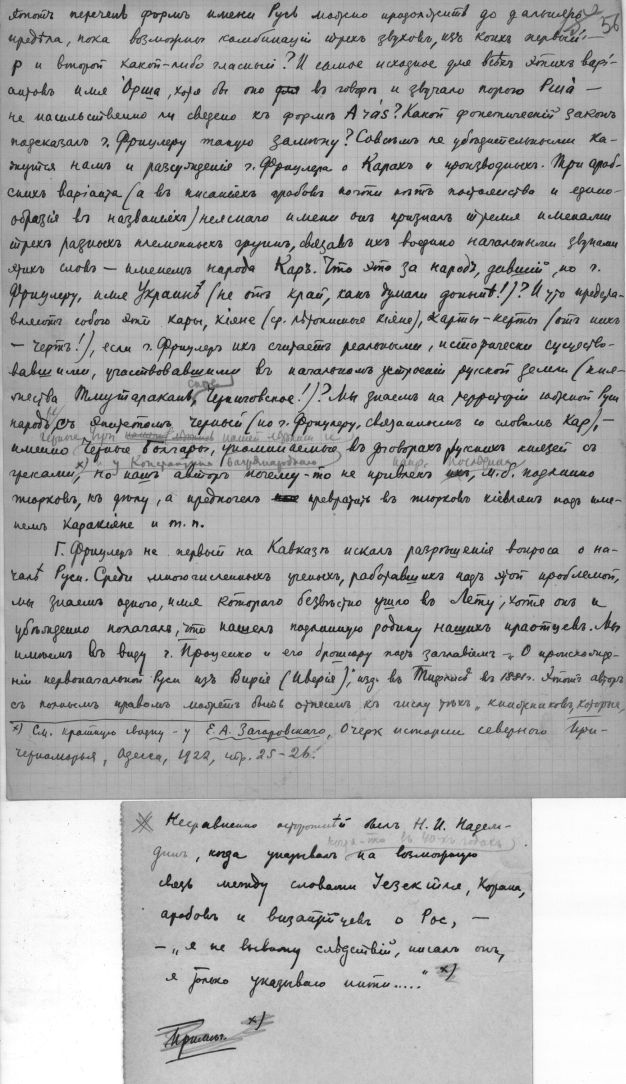 56
Этотъ перечень формъ имени Русь можно продолжить до дальняго
предѣла, пока возможны комбинаціи трехъ звуковъ, изъ коихъ первый
р и второй какой-либо гласный? И самое исходное для всѣхъ этихъ варі-
антовъ имя Орша, хотя бы оно въ говорѣ и звучало порою Рша —
не насильственно ли сведено къ формѣ Arás? Какой фонетическій законъ
подсказалъ г. Фрицлеру такую замѣну? Совсѣмъ не убѣдительными ка-
жутся намъ и разсужденія г. Фрицлера о Карахъ и производныхъ. Три араб-
скихъ варіанта (а въ писаніяхъ арабовъ почти нѣтъ постоянства и едино-
образія въ названіяхъ) неяснаго имени онъ призналъ тремя именами
трехъ разныхъ племенныхъ группъ, связавъ ихъ воедино начальными звуками
этихъ словъ — именемъ народа Каръ. Что это за народъ, давшій, по г.
Фрицлеру, имя Украинѣ (не отъ край, какъ думали донынѣ!)? И что предста-
вляютъ собою эти кары, кіяне (ср. лѣтописные кіяне), карты-керты (отъ нихъ
— чертъ!), если г. Фрицлеръ ихъ считаетъ реальными, исторически существо-
вавшими, участвовавшими въ начальномъ устроеніи русской земли (кня-
жества Тмутаракань, Черниговское!)? Мы знаемъ на территоріи южной Руси
народъ съ эпитетомъ черный (по г. Фрицлеру, связаннымъ со словомъ Кар), —
именно Черные Болгары, упоминаемые въ договорахъ русскихъ князей съ
нашей лѣтописи и
греками, х) и у Константина Багрянороднаго
но нашъ авторъ почему-то не привлекъ, м.б. подлинно
тюрковъ, къ дѣлу, а предпочелъ превратить въ тюрковъ кіевлянъ подъ име-
немъ Каракіяне и т. п.
Г. Фрицлеръ не первый на Кавказѣ искалъ разрѣшенія вопроса о на-
чалѣ Руси. Среди многочисленныхъ ученыхъ, работавшихъ надъ этой проблемой,
мы знаемъ одного, имя котораго безвѣстно ушло въ Лету, хотя онъ и
убѣжденно полагалъ, что нашелъ подлинную родину нашихъ праотцевъ. Мы
имѣемъ въ виду г. Проценко и его брошюру подъ заглавіемъ „О происхожде-
ніи первоначальной Руси изъ Виріи (Иверіи)", изд. въ Тифлисѣ въ 1881 г. Этотъ авторъ
съ полнымъ правомъ можетъ быть отнесенъ къ числу тѣхъ „книжниковъ, которые,
х) См. краткую сводку - у Е.А. Загоровскаго, Очерк истории северного При-
черноморья, Одесса, 1922, стр. 25-26.
Несравненно осторожнѣй былъ Н. И. Надеж-
когда-то въ 40-хъ годахъ
динъ, когда указывалъ на возможную
связь между словами Іезекіиля, Корана,
арабовъ и византійцевъ о Рос, —
— „я не вывожу слѣдствій, писалъ онъ,
я только указываю нити....." х)
Примѣч. х)